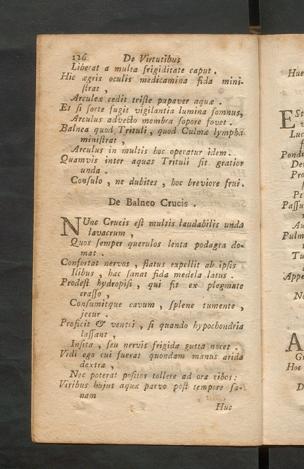 126 De Virtutibus
Liberat a multa frigiditate caput.
Hic ægris oculis medicamina fida mini-
strat,
Arculeæ cedit triste papaver aquæ.
Et si forte fugit vigilantia lumina somnus,
Arculus advecto membra sopore fovet.
Balnea quod Trituli, quod Culmæ lympha
ministrat,
Arculus in multis hoc operatur idem.
Quamvis inter aquas Trituli sit gratior
unda.
Consulo, ne dubites, hoc breviore frui.
De Balneo Crucis.
NUnc Crucis est multis laudabilis unda
lavacrum,
Quos semper querulos lenta podagra do-
mat.
Confortat nervos, flatus expellit ab ipsis
Ilibus, hac sanat fida medela latus.
Prodest hydropisi, qui fit ex plegmate
crasso,
Consumitque cavum, splene tumente,
jecur.
Proficit & ventri, si quando hypochondria
lassant,
Insita, seu nervis frigida gutta nocet.
Vidi ego cui fuerat quondam manus arida
dextra,
Nec poterat positos tollere ad ora cibos:
Viribus hujus aquæ parvo post tempore sa-
nam
Huc